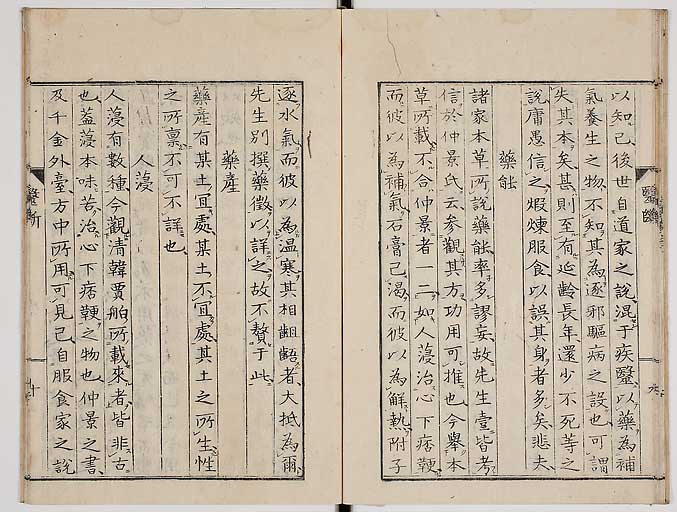 以知已後世自道家之說混于疾毉以藥為補
氣養生之物不知其為逐邪驅病之設也可謂
失其本矣甚則至有延齡長年還少不死等之
說庸愚信之煆煉服食以誤其身者多矣悲夫
藥能
諸家本草所說藥能率多謬妄故先生壹皆考
信於仲景氏云參觀其方功用可推也今舉本
草所載不合仲景者一二如人葠治心下痞鞕
而彼以為補氣石膏已渴而彼以為解熱附子
逐水氣而彼以為温寒其相齟齬者大抵為爾
先生別撰藥徵以詳之故不贅于此
藥產
藥產有某土宜處某土不宜處其土之所生性
之所稟不可不詳也
人葠
人葠有數種今觀清韓賈舶所載來者皆非古
也蓋葠本味苦治心下痞鞕之物也仲景之書
及千金外臺方中所用可見已自服食家之說
醫斷